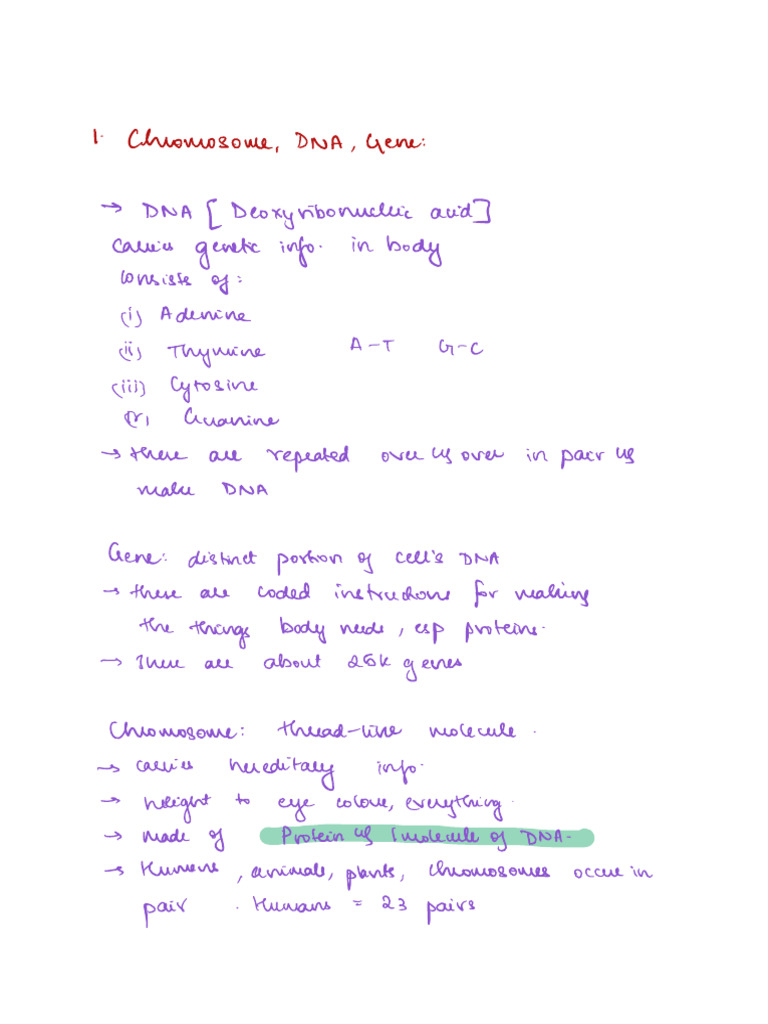 1. Chromosome, DNA, Gene:
→ DNA [Deoxyribonucleic acid]
carries genetic info. in body
consists of:
(i) Adenine
(ii) Thymine A-T G-C
(iii) Cytosine
(iv) Guanine
→ these are repeated over & over in pair &
make DNA
Gene: distinct portion of cell's DNA
→ these are coded instructions for making
the things body needs, esp proteins.
→ There are about 25k genes
Chromosome: thread-like molecule.
→ carries hereditary info.
→ height to eye colour, everything.
→ made of Protein & 1 molecule of DNA.
→ Humans, animals, plants, chromosomes occur in
pair. Humans = 23 pairs